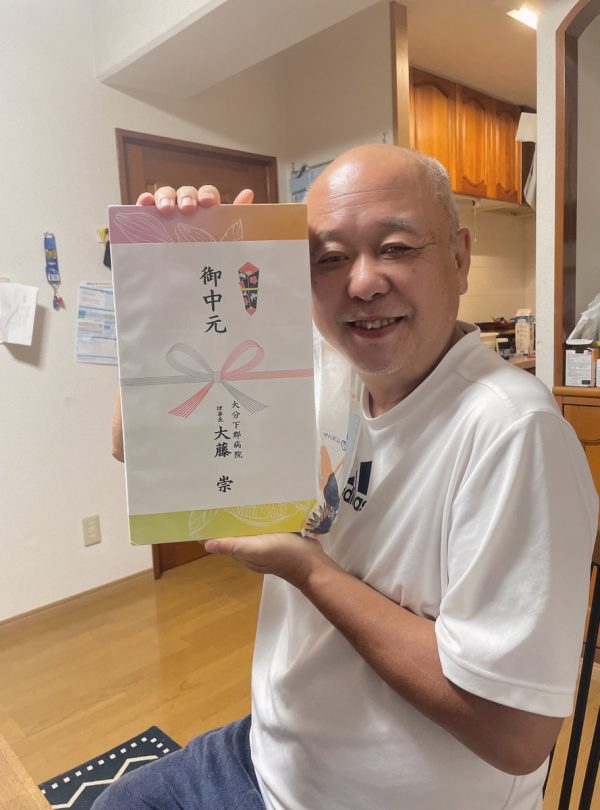 御中元
大分下郡病院
理事長
大藤 崇
adidas